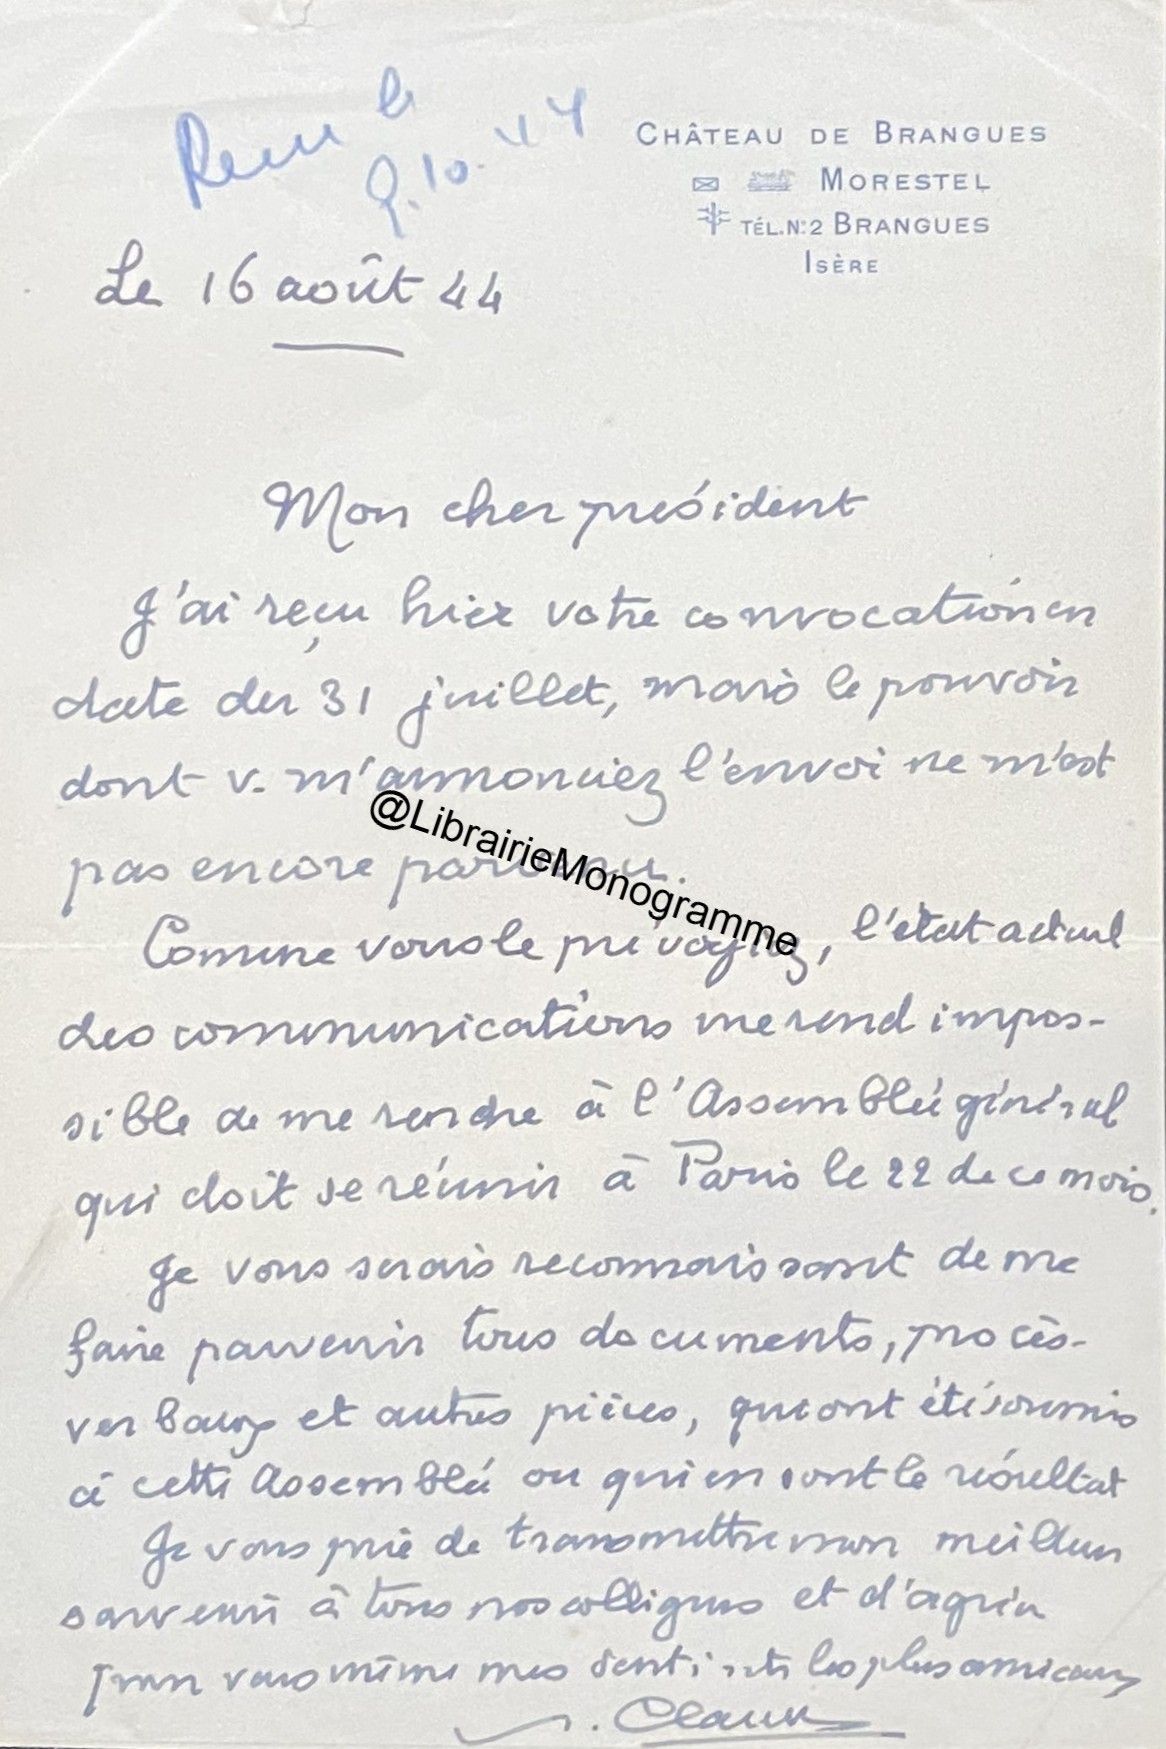 Reçu le
9.10.44
CHÂTEAU DE BRANGUES
MORESTEL
TÉL.N:2 BRANGUES
ISÈRE
Le 16 août 44
Mon cher président
J'ai reçu hier votre convocation en
date du 31 juillet, mais le pouvoir
dont v. m'annonciez l'envoi ne m'est
pas encore parvenu.
@LibrairieMonogramme
Comme vous le prévoyiez, l'état actuel
des communications me rend impos-
sible de me rendre à l'Assemblée général
qui doit se réunir à Paris le 22 de ce mois.
Je vous serais reconnaissant de me
faire parvenir tous documents, procès-
verbaux et autres pièces, qui ont été soumis
à cette Assemblée ou qui en sont le résultat
Je vous prie de transmettre mon meilleur
souvenir à tous nos collègues et d'agréer
pour vous même mes sentiments les plus amicaux
P. Claudel